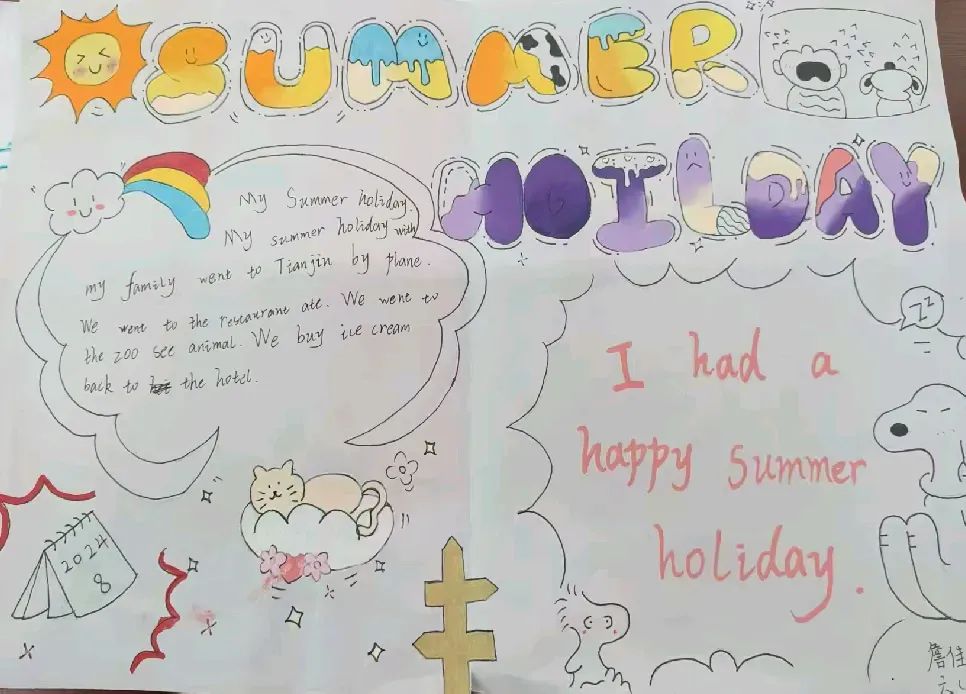 SUMMER
HOILDAY
My Summer holiday.
My summer holiday with
my family went to Tianjin by plane.
We went to the restaurant ate. We went to
the zoo see animal. We buy ice cream
back to the hotel.
I had a
happy summer
holiday.
ZZ
2024
8
詹佳